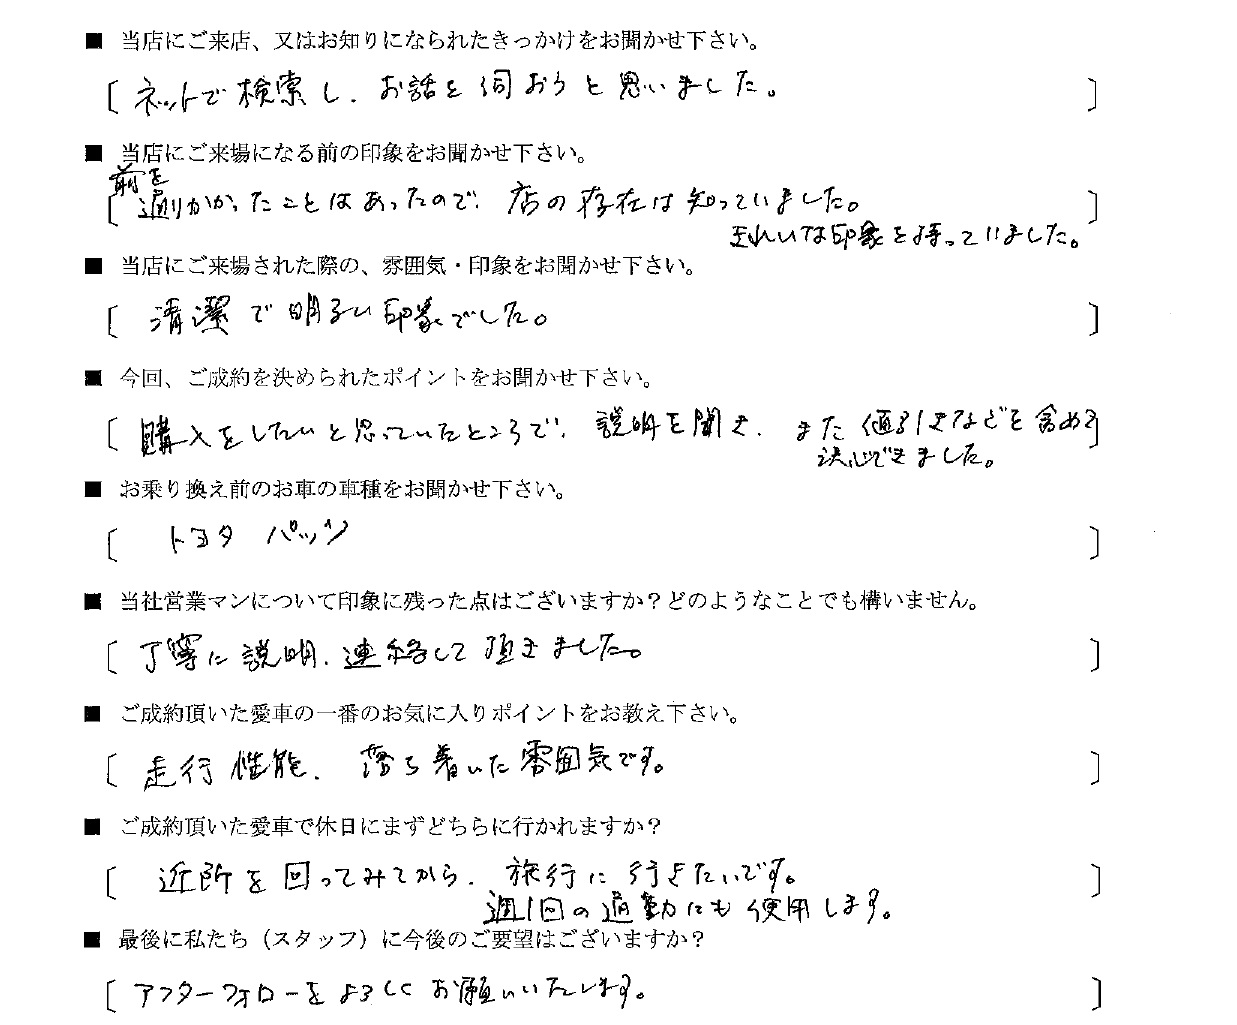 ■ 当店にご来店、又はお知りになられたきっかけをお聞かせ下さい。
〔 ネットで検索し、お話を伺おうと思いました。 〕
■ 当店にご来場になる前の印象をお聞かせ下さい。
前を
〔 通りかかったことはあったので、店の存在は知っていました。 〕
きれいな印象を持っていました。
■ 当店にご来場された際の、雰囲気・印象をお聞かせ下さい。
〔 清潔で明るい印象でした。 〕
■ 今回、ご成約を決められたポイントをお聞かせ下さい。
〔 購入をしたいと思っていたところで、説明を聞き、また値引きなどを含めて 〕
決心できました。
■ お乗り換え前のお車の車種をお聞かせ下さい。
〔 トヨタ パッソ 〕
■ 当社営業マンについて印象に残った点はございますか？どのようなことでも構いません。
〔 丁寧に説明、連絡して頂きました。 〕
■ ご成約頂いた愛車の一番のお気に入りポイントをお教え下さい。
〔 走行性能、落ち着いた雰囲気です。 〕
■ ご成約頂いた愛車で休日にまずどちらに行かれますか？
〔 近所を回ってみてから、旅行に行きたいです。 〕
週1回の通勤にも使用します。
■ 最後に私たち（スタッフ）に今後のご要望はございますか？
〔 アフターフォローをよろしくお願いいたします。 〕